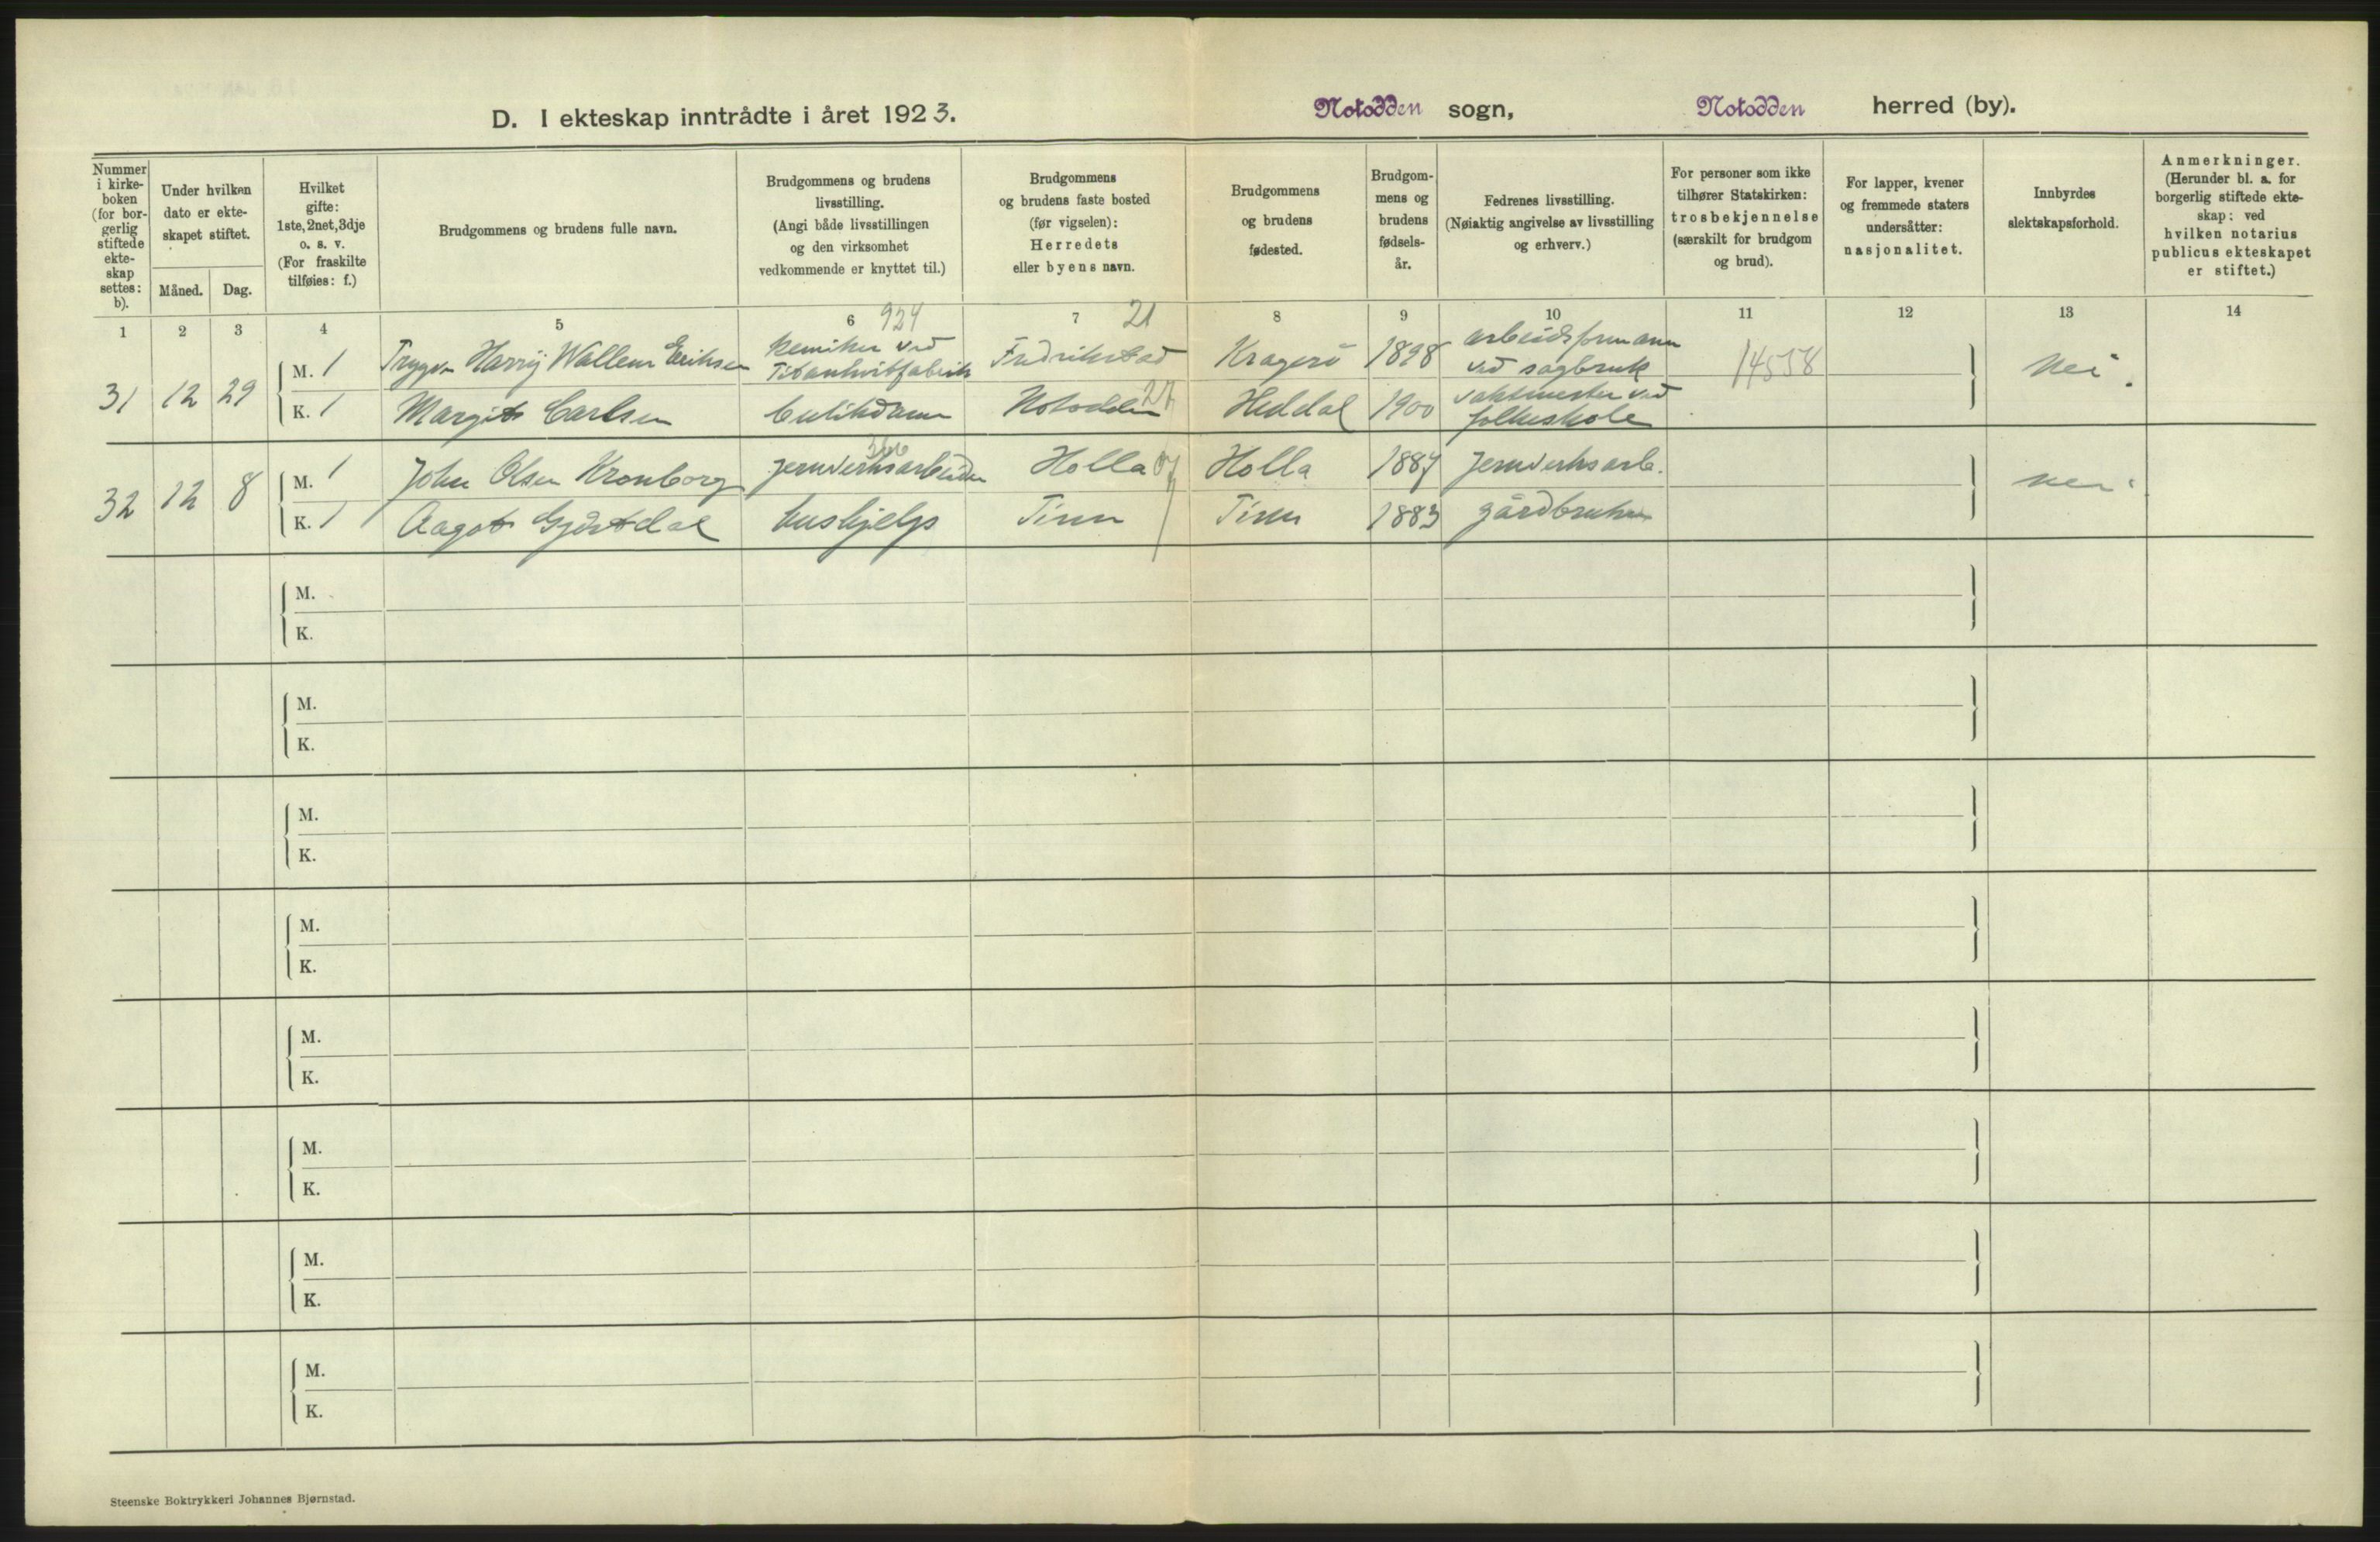 D. I ekteskap inntrådte i året 1923.
Notodden sogn, Notodden herred (by).
Nummer i kirke- boken (for bor- gerlig stiftede ekte- skap settes: b).
Under hvilken dato er ekte- skapet stiftet.
Måned. Dag.
Hvilket gifte: 1ste, 2net, 3dje o. s. v. (For fraskilte tilføies: f.)
Brudgommens og brudens fulle navn.
Brudgommens og brudens livsstilling. (Angi både livsstillingen og den virksomhet vedkommende er knyttet til.)
Brudgommens og brudens faste bosted (før vigselen): Herredets eller byens navn.
Brudgommens og brudens fødested.
Brudgom- mens og brudens fødsels- år.
Fedrenes livsstilling. (Nøiaktig angivelse av livsstilling og erhverv.)
For personer som ikke tilhører Statskirken: trosbekjennelse (særskilt for brudgom og brud).
For lapper, kvener og fremmede staters undersåtter: nasjonalitet.
Innbyrdes slektskapsforhold.
Anmerkninger. (Herunder bl. a. for borgerlig stiftede ekte- skap: ved hvilken notarius publicus ekteskapet er stiftet.)
1 2 3 4 5 6 7 8 9 10 11 12 13 14
924 21
31 12 29 M. 1 Trygve Harry Wallem Eriksen kemiker ved Titanhvitfabrik Fredrikstad Kragerö 1898 arbeidsformann ved sagbruk 14558 Nei.
K. 1 Margit Carlsen butikdame Notodden 27 Heddal 1900 vaktmester ved folkeskole
32 12 8 M. 1 John Olsen Kronborg jernverksarbeider Holla 07 Holla 1887 jernverksarb. nei
K. 1 Aagot Gjöstdal hushjelp Tinn Tinn 1883 gårdbruker
M.
K.
M.
K.
M.
K.
M.
K.
M.
K.
M.
K.
M.
K.
M.
K.
Steenske Boktrykkeri Johannes Bjørnstad.